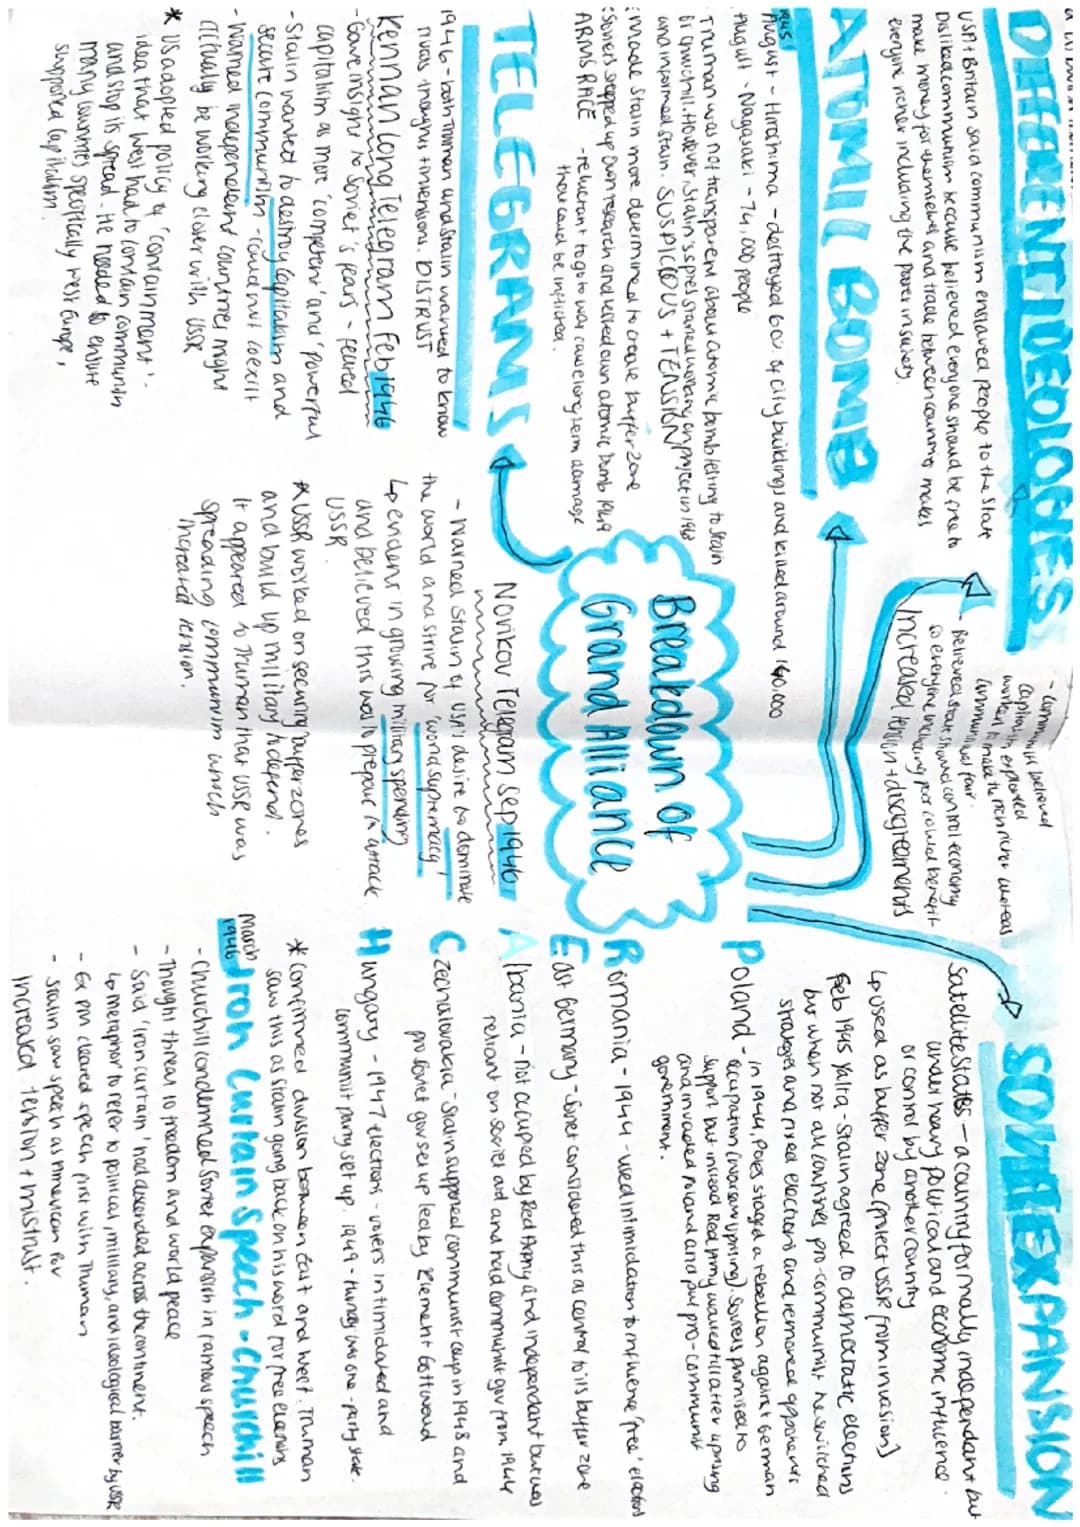 Breakdown of
Grand Alliance
DIFFERENT IDEOLOGIES
USA + Britain said communism enslaved people to the state
Disliked communism because believed everyone should be free to
make money for themselves and trade between countries makes
everyone richer including the poorer in society.
- communists believed
capitalism exploited
workers to make the rich richer whereas
communist was fair.
- Believed state should control economy
so everyone including poor could benefit
Increased tension + disagreements
ATOMIC BOMB
1945
August - Hiroshima - destroyed 60% of city buildings and killed around 140,000
August - Nagasaki - 74,000 people
Truman was not transparent about atomic bomb testing to Stalin
or Churchill. However, Stalin's spies started working on project in
and informed Stalin. SUSPICIOUS + TENSION
Made Stalin more determined to create buffer zone
Soviets stepped up own research and tested own atomic bomb 1949
ARMS RACE - reluctant to go to war cause long term damage
that could be inflicted.
TELEGRAMS
1946 - both Truman and Stalin wanted to know
rivals thoughts + intensions. DISTRUST
Kennan Long Telegram Feb 1946
- Gave insight to Soviet's fears - feared
capitalism as more 'competent' and 'powerful'
- Stalin wanted to destroy capitalism and
secure communism - could not coexist
- Warned independent countries might
actually be working closer with USSR
* US adopted policy of 'containment'.
idea that West had to contain communism
and stop its spread. He needed to ensure
many countries specifically West Europe,
supported capitalism.
Novikov Telegram Sep 1946
- Warned Stalin of USA's desire to dominate
the world and strive for 'world supremacy'
↳ evident in growing military spending
and believed this was to prepare to attack
USSR
* USSR worked on securing buffer zones
and build up military to defend.
It appeared to Truman that USSR was
spreading communism which
increased tension.
SOVIET EXPANSION
Satellite States - a country formally independant but
under heavy political and economic influence
or control by another country
↳ used as buffer zone (protect USSR from invasion)
Feb 1945 Yalta - Stalin agreed to democratic elections
but when not all countries pro-communist he switched
strategies and fixed elections and removed opponents
Poland - in 1944, Poles staged a rebellion against German
occupation (Warsaw uprising). Soviets promised to
support but instead Red Army waited till after uprising
and invaded Poland and put pro-communist
government.
Romania - 1944 - used intimidation to influence 'free' elections
East Germany - Soviet considered this as central to its buffer zone
Albania - Not occupied by Red Army and independant but was
reliant on Soviet aid and had communist gov from 1944
Czechoslovakia - Stalin supported communist coup in 1948 and
pro Soviet gov set up lead by Klement Gottwald
Hungary - 1947 elections - voters intimidated and
communist party set up. 1949 - Hungary was one-party state.
* Confirmed division between East and West. Truman
saw this as Stalin going back on his word for free elections
March
1946 Iron Curtain Speech - Churchill
- Churchill condemned Soviet expansion in famous speech
- Thought threat to freedom and world peace
- Said 'iron curtain' had descended across the continent.
↳ metaphor to refer to political, military, and ideological barrier by USSR
- Ex pm cleared speech first with Truman
- Stalin saw speech as American
Increased tension + mistrust.